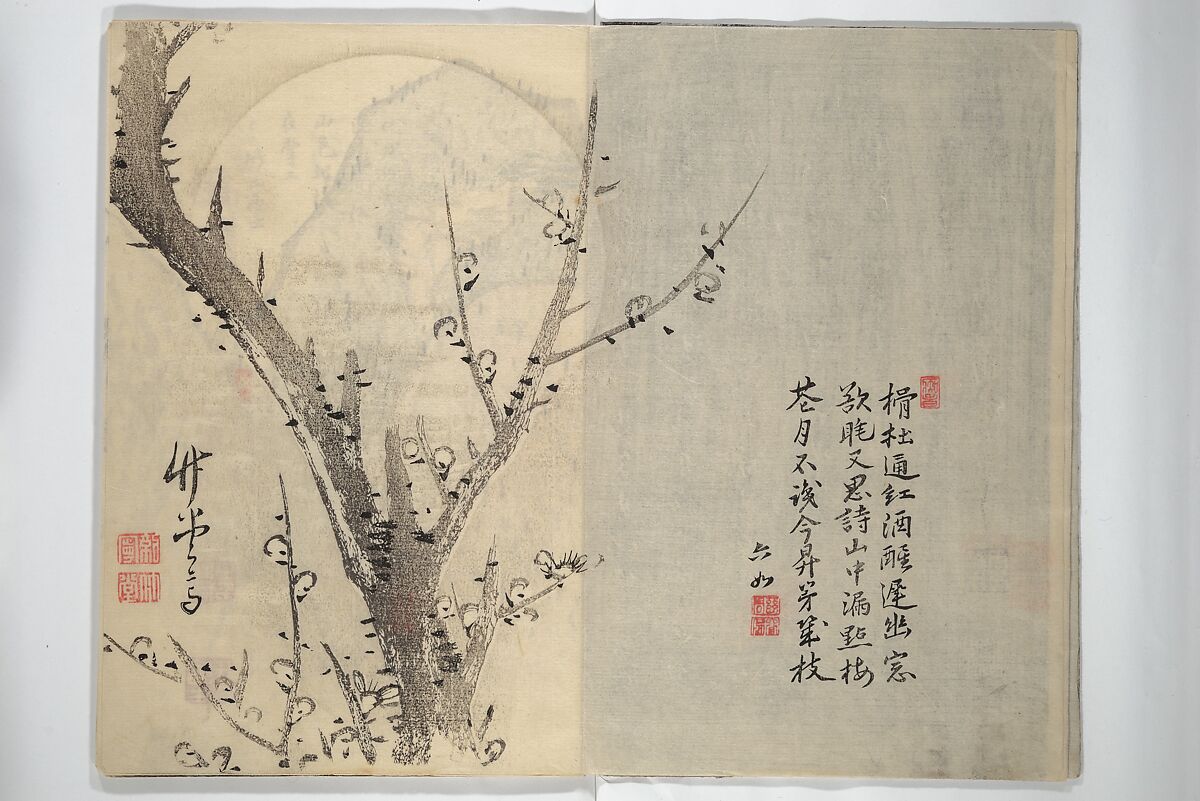 榾柮通紅酒醒遲幽窓
欲眠又思詩山中漏點梅
花月不識今昇第幾枝
六如
竹堂寫